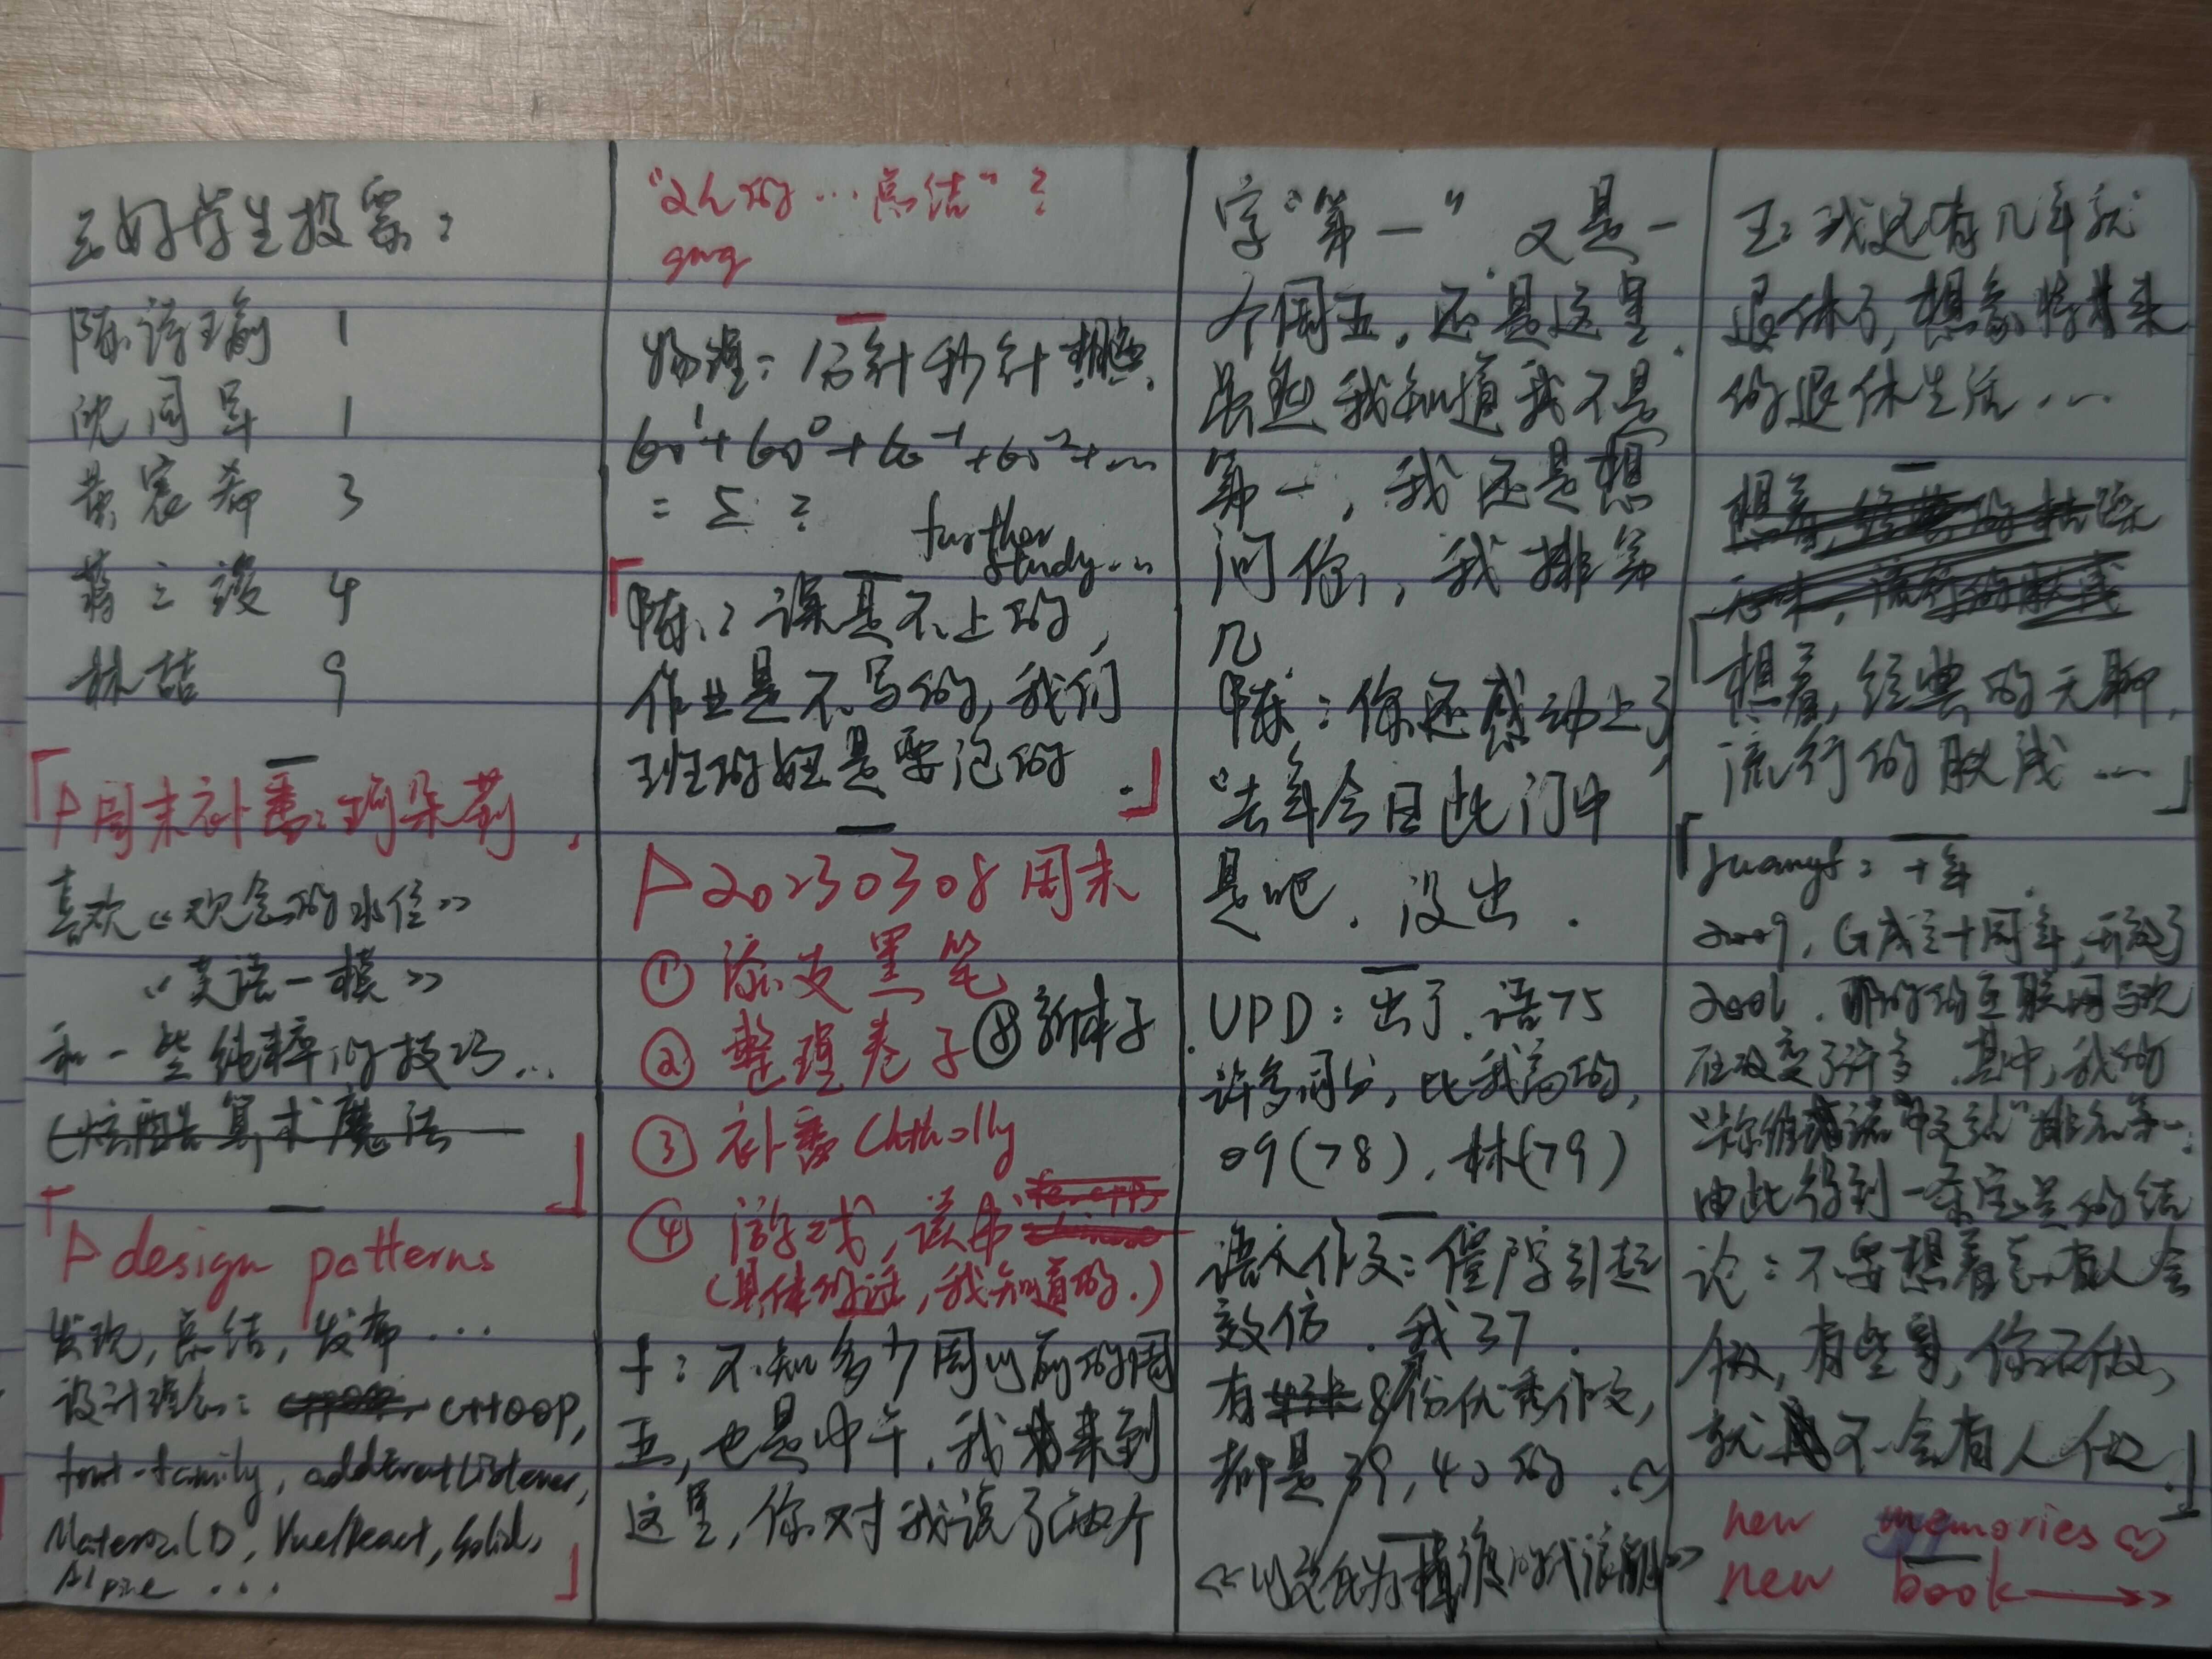 三好学生投票：
陈诗瑜 1
沈同 1
黄宸希 3
蒋之 4
林喆 9
周末补番：珂朵莉
喜欢《观念的水位》
《英语一模》
和一些纯粹的技巧...
(炫酷算术魔法
design patterns
发现,总结,发布...
设计理念： C++OOP,
font-family, addEventListener,
MaterialD, Vue/React, Solid,
Alpine ...
的...总结"?
物理：1分针秒针
60¹+60⁰+60⁻¹+60⁻²+...
= Σ ?
further
study...
陈：课是不上的,
作业是不写的,我们
班的妞是要泡的.
20230308周末
① 添支黑笔
② 整理卷子 ⑧新本子
③ 补番 Chtholly
④ 游戏,读书
(具体的话,我知道的.)
：不知多少周以前的周
五,也是中午.我来到
这里,你对我说了两个
字"第一".又是一
个周五,还是这里.
虽然我知道我不是
第一,我还是想
问你,我排第
几
陈：你还感动上了
"去年今日此门中
是吧.没出.
UPD：出了.语75
许多同分,比我高的,
09(78),林(79)
语文作文：僵尸引起
效仿.我37.
有 8份优秀作文,
都是39,40的.
王：我还有几年就
退休了,想象将来
的退休生活...
想着,经典的无聊,
流行的肤浅...
ruanyf：十年.
2009,G成立十周年,开放了
2001.那时的互联网与现
在改变了许多.其中,我的
排名第一.
由此得到一条宝贵的结
论：不要想着总有人会
做,有些事,你不做,
就不会有人做
new memories
new book